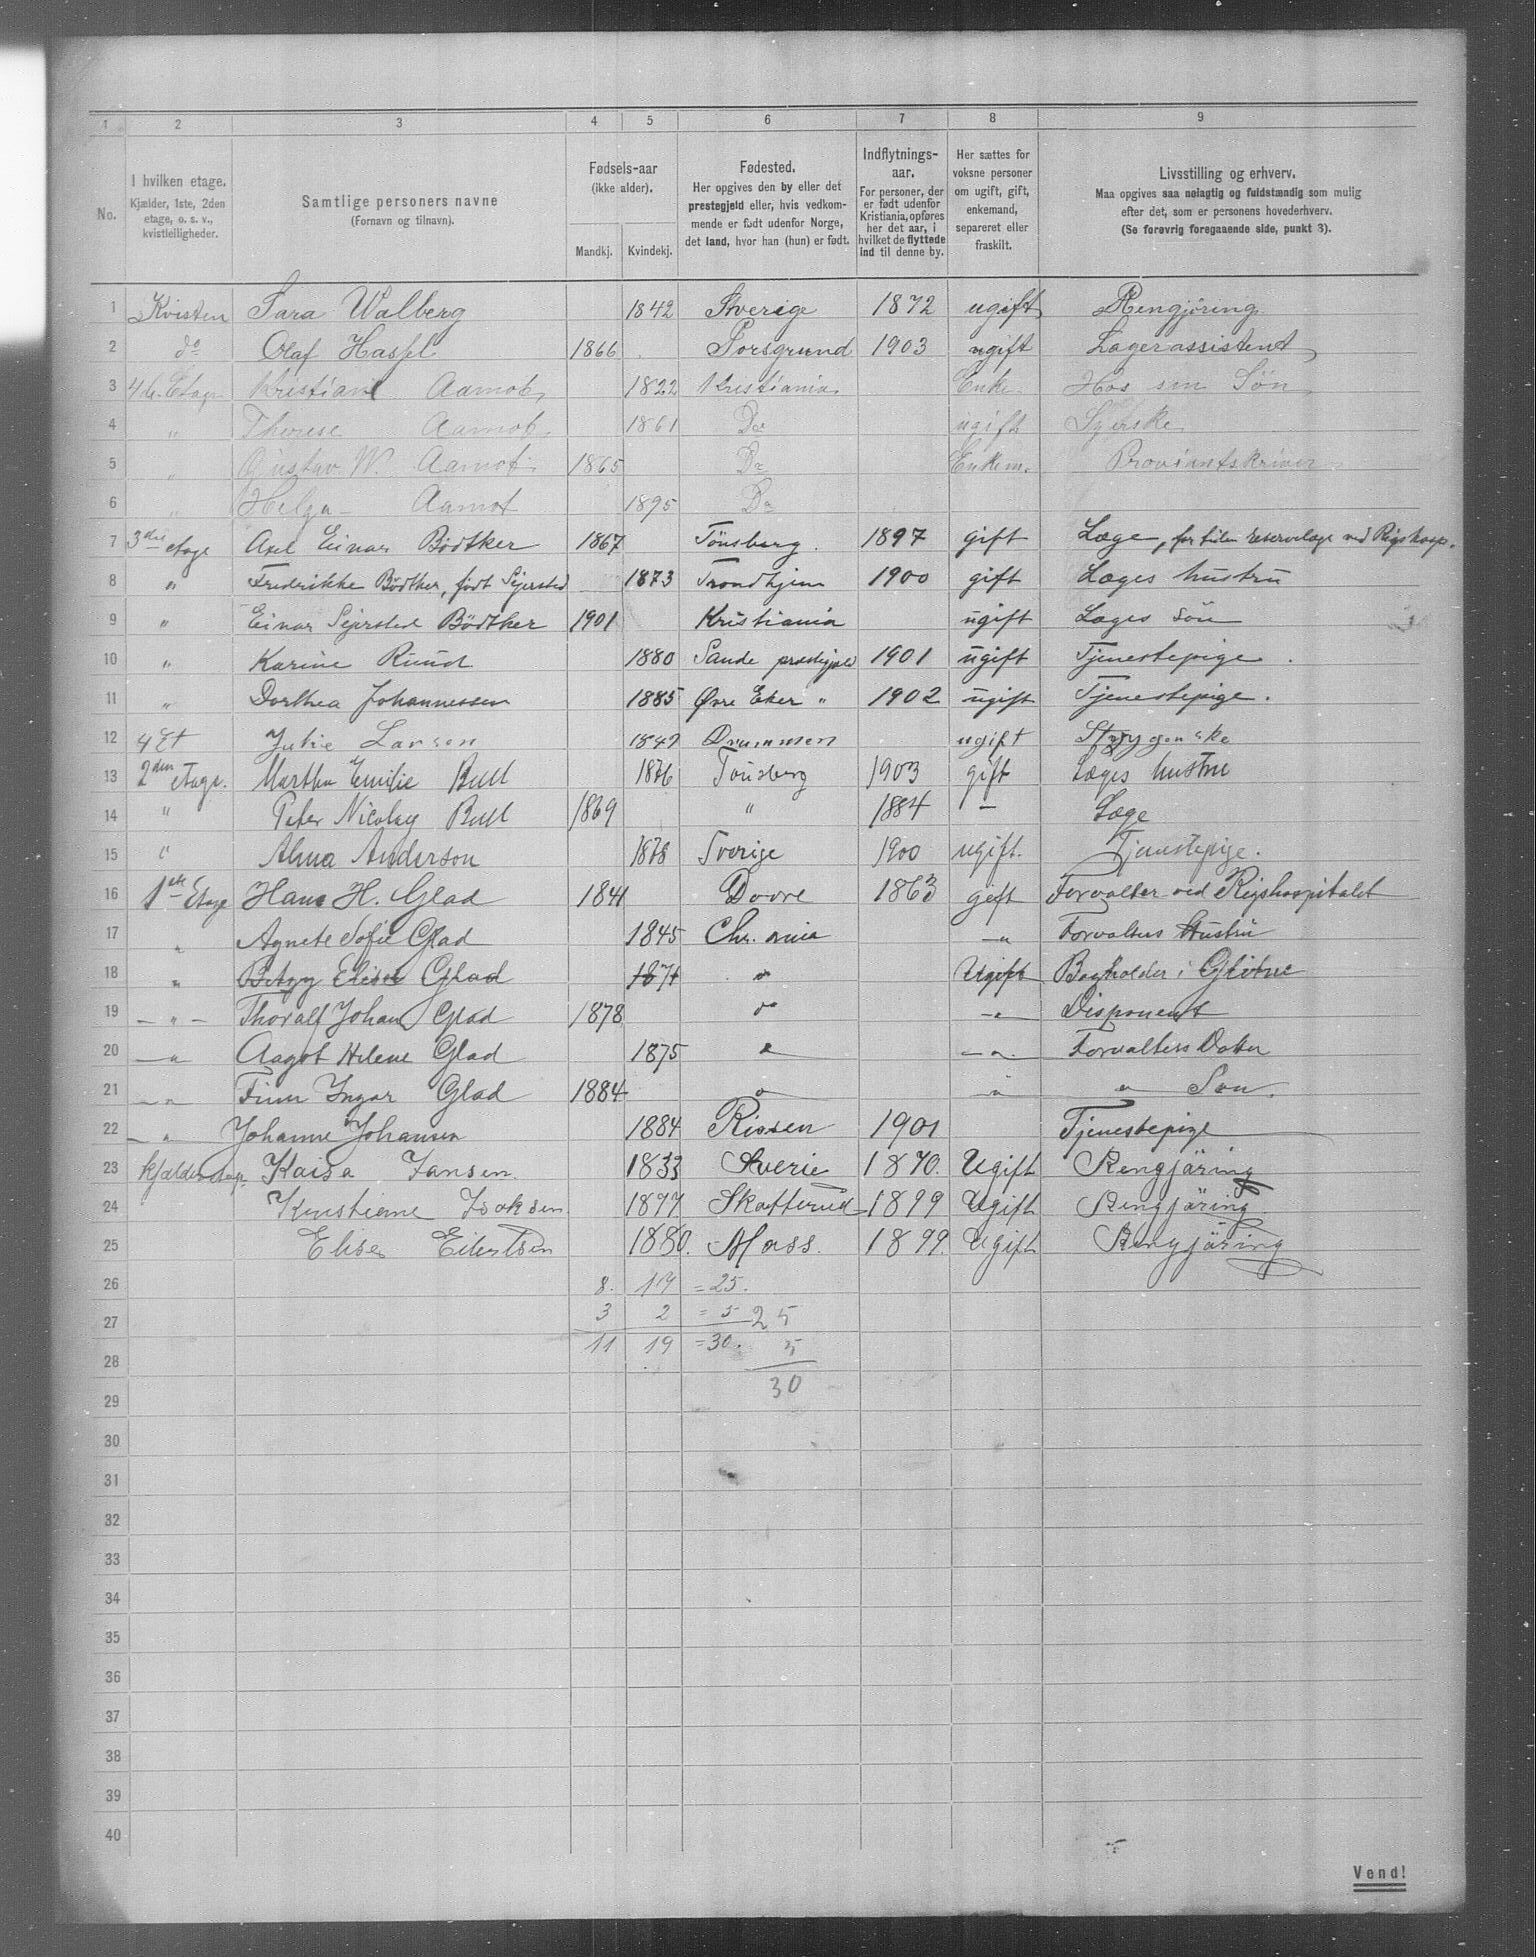 1 2 3 4 5 6 7 8 9
No.
I hvilken etage.
Kjælder, 1ste, 2den etage, o. s. v., kvistleiligheder.
Samtlige personers navne
(Fornavn og tilnavn).
Fødsels-aar
(ikke alder).
Mandkj. Kvindekj.
Fødested.
Her opgives den by eller det prestegjeld eller, hvis vedkommende er født udenfor Norge, det land, hvor han (hun) er født.
Indflytnings-aar.
For personer, der er født udenfor Kristiania, opføres her det aar, i hvilket de flyttede ind til denne by.
Her sættes for voksne personer om ugift, gift, enkemand, separeret eller fraskilt.
Livsstilling og erhverv.
Maa opgives saa nøiagtig og fuldstændig som mulig efter det, som er personens hovederhverv.
(Se forøvrig foregaaende side, punkt 3).
1 Kvisten Sara Walberg 1842 Sverige 1872 ugift Rengjöring
2 do Olaf Hassel 1866 Porsgrund 1903 ugift Lagerassistent
3 4de Etage Kristiane Aamot 1822 Kristiania Enke Hos sin Sön
4 " Therese Aamot 1861 Do ugift Syerske
5 " Gustav W. Aamot 1865 Do Enkem. Proviantskriver
6 " Helga Aamot 1895 Do
7 3die etage Axel Einar Bödtker 1867 Tönsberg 1897 gift Læge, for tiden reservelæge ved Rigshosp.
8 " Fredrikke Bödtker, født Sejersted 1873 Trondhjem 1900 gift Læges hustru
9 " Einar Sejersted Bödtker 1901 Kristiania ugift Læges sön
10 " Karine Ruud 1880 Sande prestegjeld 1901 ugift Tjenestepige.
11 " Dorthea Johannessen 1885 Øvre Eker " 1902 ugift Tjenestepige.
12 4 Et Julie Larsen 1849 Drammen ugift Strygerske
13 2den etage. Martha Emilie Bull 1876 Tönsberg 1903 gift Læges hustru
14 " Peter Nicolay Bull 1869 " 1884 – Læge
15 " Alma Anderson 1878 Sverige 1900 ugift. Tjenestepige.
16 1ste Etage Hans H. Glad 1841 Dovre 1863 gift Forvalter ved Rigshospitalet
17 " Agnete Sofie Glad 1845 Chr.ania " Forvalters Hustru
18 " Betzy Elise Glad 1871 " Ugift Bogholder i Glitne
19 – " – Thoralf Johan Glad 1878 " " Disponent
20 – " Aagot Helene Glad 1875 " – " – Forvalters Datter
21 – " Finn Ingar Glad 1884 " " " Søn.
22 – " Johanne Johansen 1884 Rissen 1901 Tjenestepige
23 Kjælderetage Kaisa Jansen 1833 Sverie 1870. Ugift Rengjäring
24 Kristiane 1877 1899 Ugift Rengjäring
25 Elise Eilertsen 1880. Moss. 1899. Ugift Rengjäring
26 8. 17 = 25.
27 3 2 = 5 25
28 11 19 = 30. 5
29 30
30
31
32
33
34
35
36
37
38
39
40
Vend!